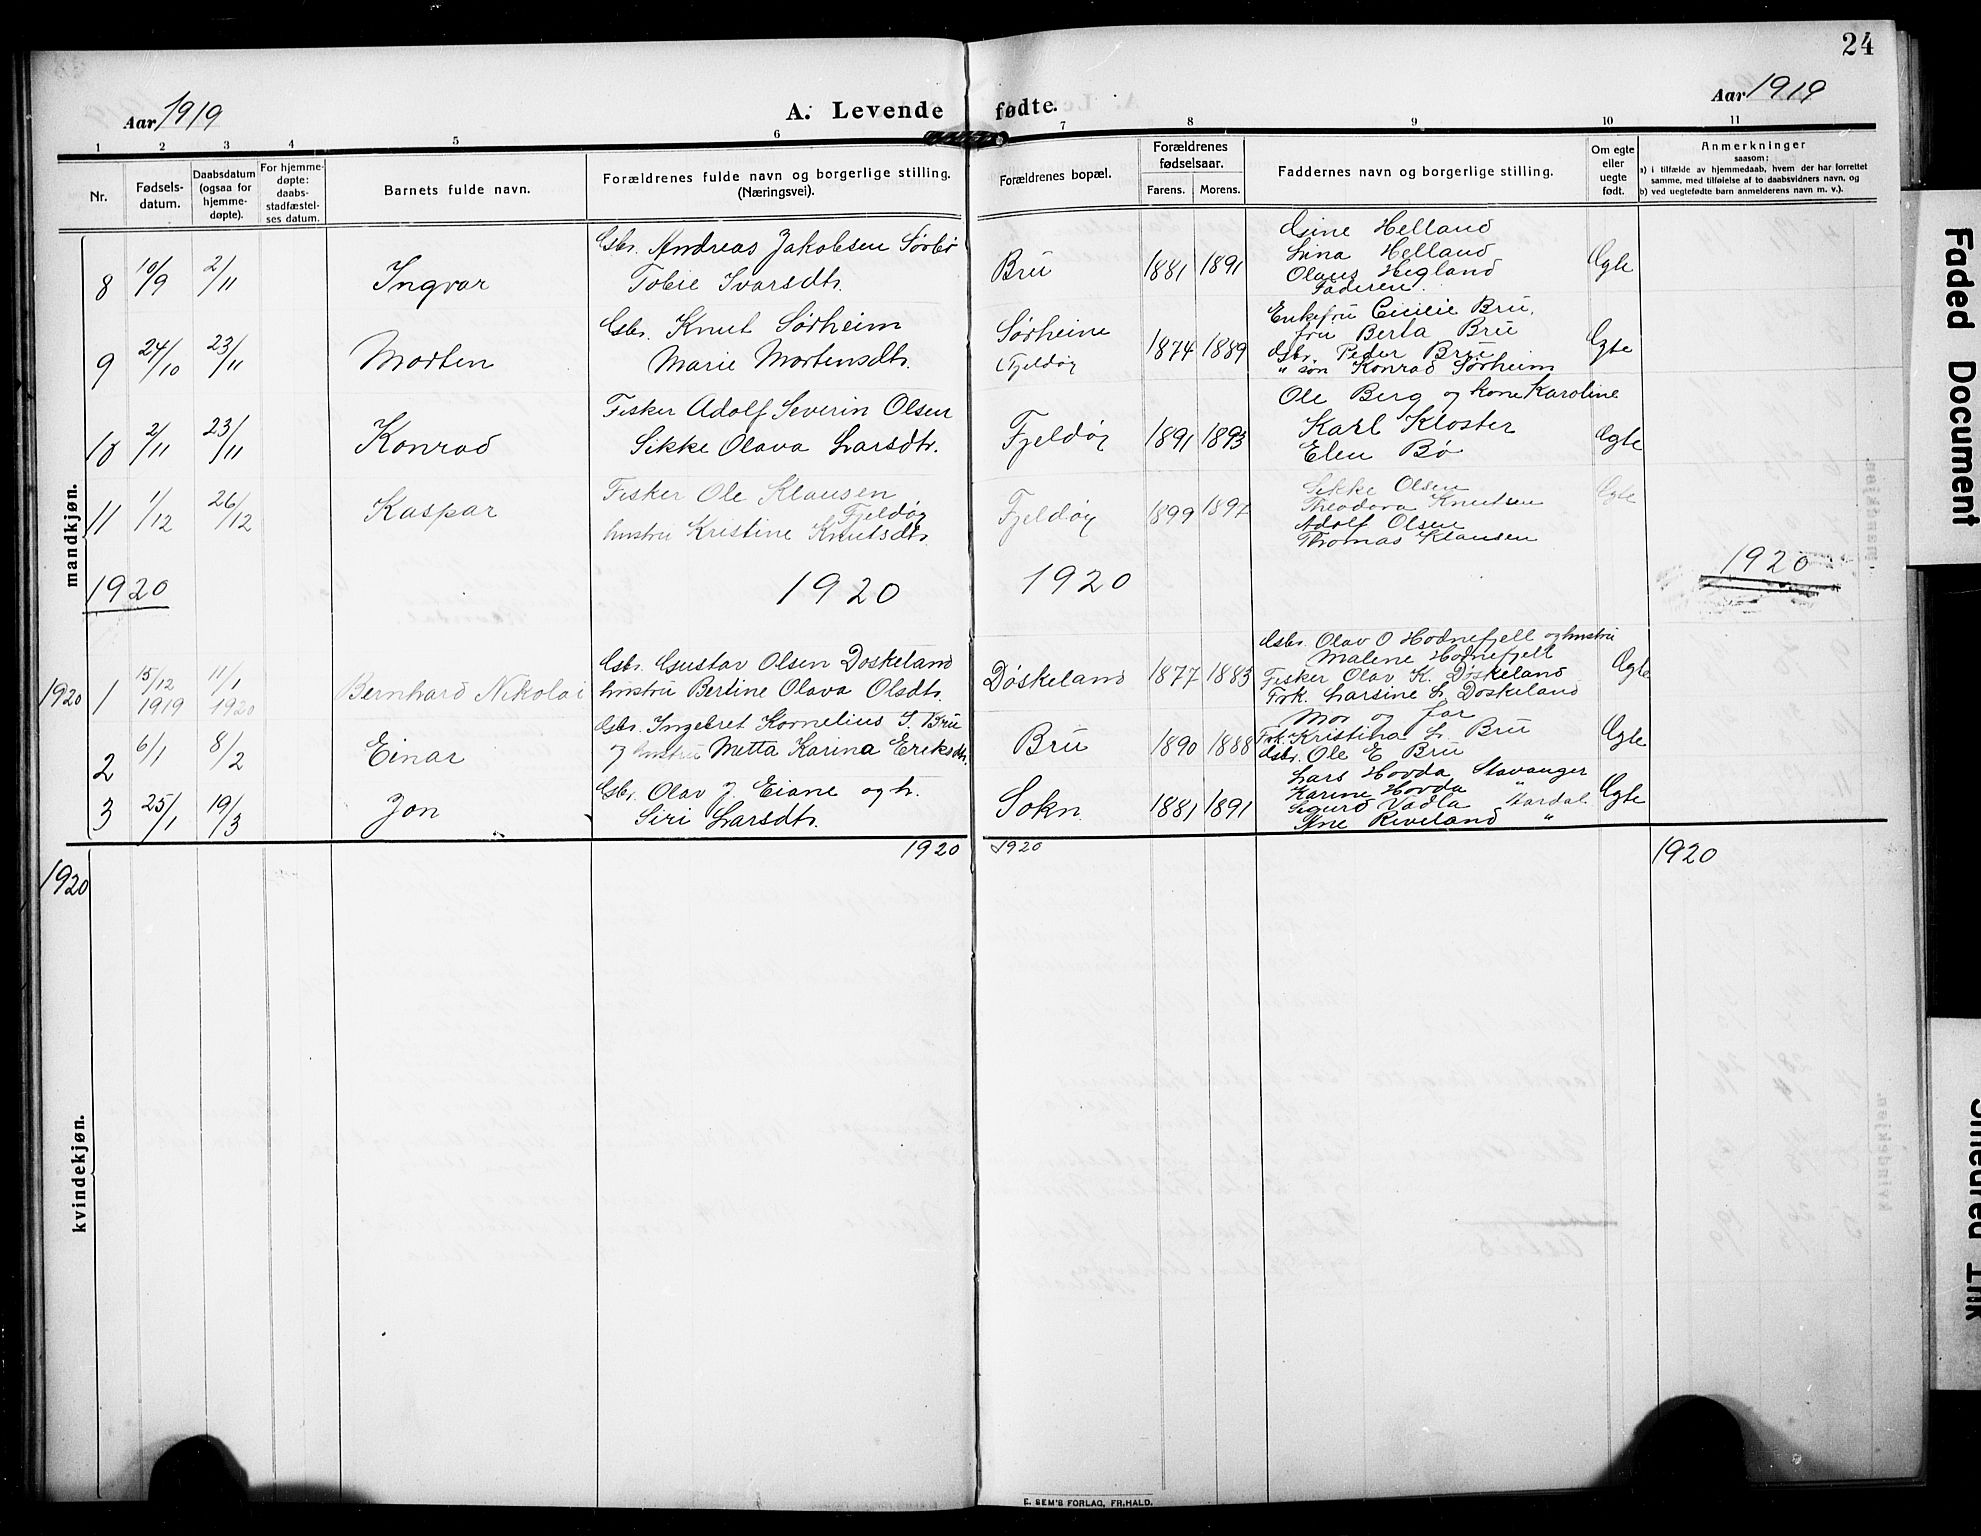 24
Aar 1919
A. Levende fødte.
Aar 1919
1 2 3 4 5 6 7 8 9 10 11
Nr.
Fødsels-
datum.
Daabsdatum
(ogsaa for
hjemme-
døpte).
For hjemme-
døpte:
daabs-
stadfæstel-
ses datum.
Barnets fulde navn.
Forældrenes fulde navn og borgerlige stilling.
(Næringsvei).
Forældrenes bopæl.
Forældrenes
fødselsaar.
Farens. Morens.
Faddernes navn og borgerlige stilling.
Om egte
eller
uegte
født.
Anmerkninger
saasom:
a) i tilfælde av hjemmedaab, hvem der har forrettet
samme, med tilføielse af to daabsvidners navn, og
b) ved uegtefødte barn anmelderens navn m. v.).
mandkjøn.
8 10/9 2/11 Ingvar
Gbr. Andreas Jakobsen Sørbø
Tobie Ivarsdtr.
Bru 1881 1891
Gine Helland
Lina Helland
Olaus Hegland
Faderen.
Ægte
9 24/10 23/11 Morten
Gbr. Knut Sørheim
Marie Mortensdtr.
Sørheim
Fjeldøy
1874 1889
Enkefru Cicilie Bru,
fru Berta Bru
Gbr. Peder Bru
" søn Konrad Sørheim
Ægte
10 2/11 23/11 Konrad
Fisker Adolf Severin Olsen
Sikke Olava Larsdtr.
Fjeldøy 1891 1893
Ole Berg og kone Karoline
Karl Kloster
Elen Bø
Ægte
11 1/12 26/12 Kaspar
Fisker Ole Klausen
Fjeldøy
hustru Kristine Knutsdtr.
Fjeldøy 1899 1897
Sikke Olsen
Theodora Knutsen
Adolf Olsen
Thomas Klausen
Ægte
1920 1920 1920 1920
1920 1 15/12 1919 11/1 1920 Bernhard Nikolai
Gbr. Gustav Olsen Døskeland
hustru Bertine Olava Olsdtr.
Døskeland 1877 1883
Gbr. Olav O Hodnefjell og hustru
Malene Hodnefjell
Fisker Olav K. Døskeland
Frk. Larsine L. Døskeland
Ægte
2 6/1 8/2 Einar
Gbr. Ingebret Kornelius I. Bru
og hustru Metta Karina Eriksdtr.
Bru 1890 1888
Mor og far
Frk. Kristina L. Bru
Gbr. Ole E Bru
Ægte
3 25/1 19/3 Jon
Gbr. Olav J. Eiane og h.
Siri Larsdtr.
Sokn. 1881 1891
Lars Hovda Stavanger
Karine Hovda "
Sigurd Vadla Aardal
Ane Riveland "
Ægte
1920 1920 1920 1920
kvindekjøn.
E. SEM'S FORLAG, FR.HALD.
Faded Document